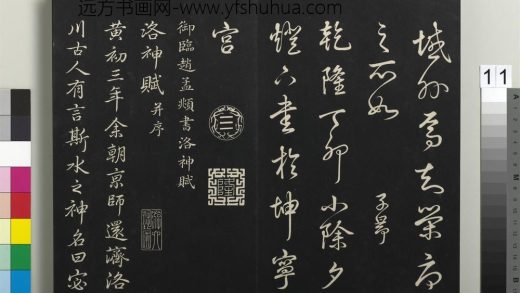 远方书画网- www.yfshuhua.com
焉知
之所如 子昂
乾隆丁卯小除夕
燈下書於坤寧
宮
御臨趙孟頫書洛神賦
洛神賦 并序
黃初三年余朝京師還濟洛
川古人有言斯水之神名曰宓
11